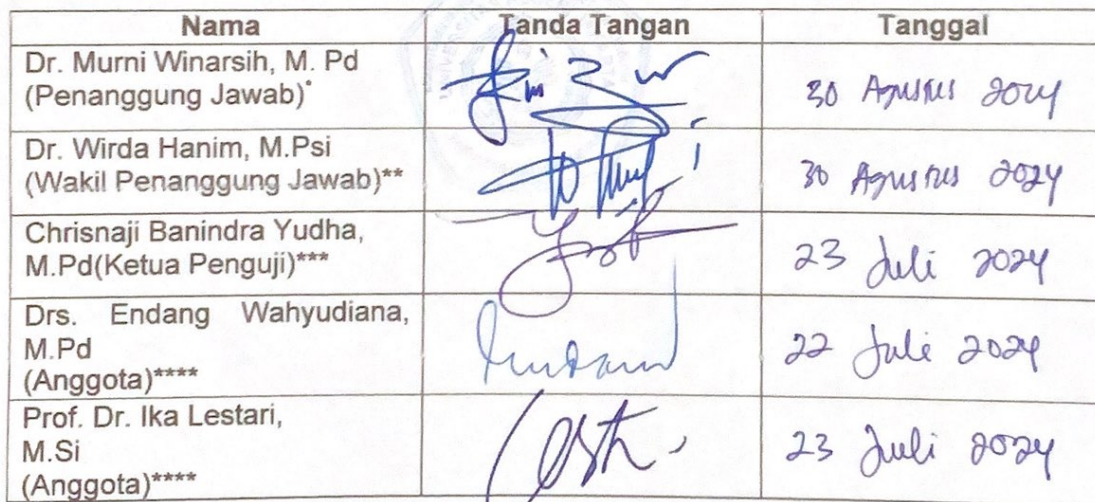 Nama Tanda Tangan Tanggal
Dr. Murni Winarsih, M. Pd
(Penanggung Jawab)*
30 Agustus 2024
Dr. Wirda Hanim, M.Psi
(Wakil Penanggung Jawab)**
30 Agustus 2024
Chrisnaji Banindra Yudha,
M.Pd(Ketua Penguji)***
23 Juli 2024
Drs. Endang Wahyudiana,
M.Pd
(Anggota)****
22 Juli 2024
Prof. Dr. Ika Lestari,
M.Si
(Anggota)****
23 Juli 2024